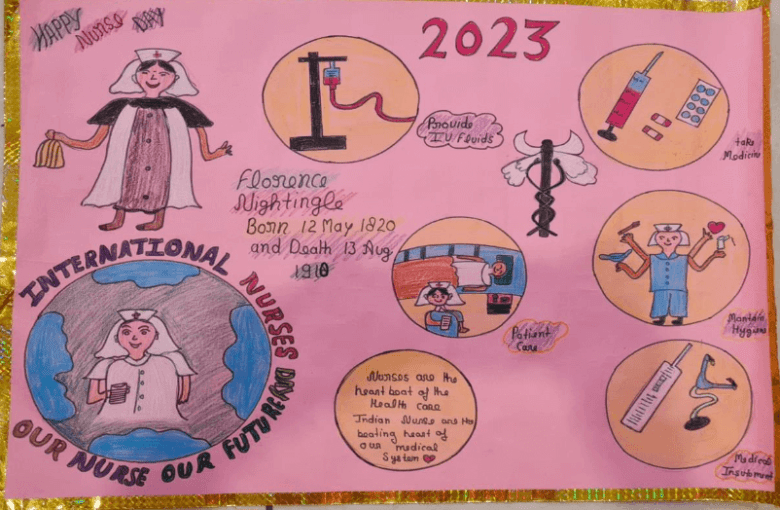 HAPPY
Nurse DAY
2023
Provide
I.V Fluids
take
Medicine
Florence
Nightingle
Born 12 May 1820
and Death 13 Aug
1910
INTERNATIONAL NURSES DAY
OUR NURSE OUR FUTURE
Patient
Care
Mantain
Hygiene
Nurses are the
heart boat of the
Health care
Indian Nurse are the
beating heart of
our medical
System
Medical
Instubment